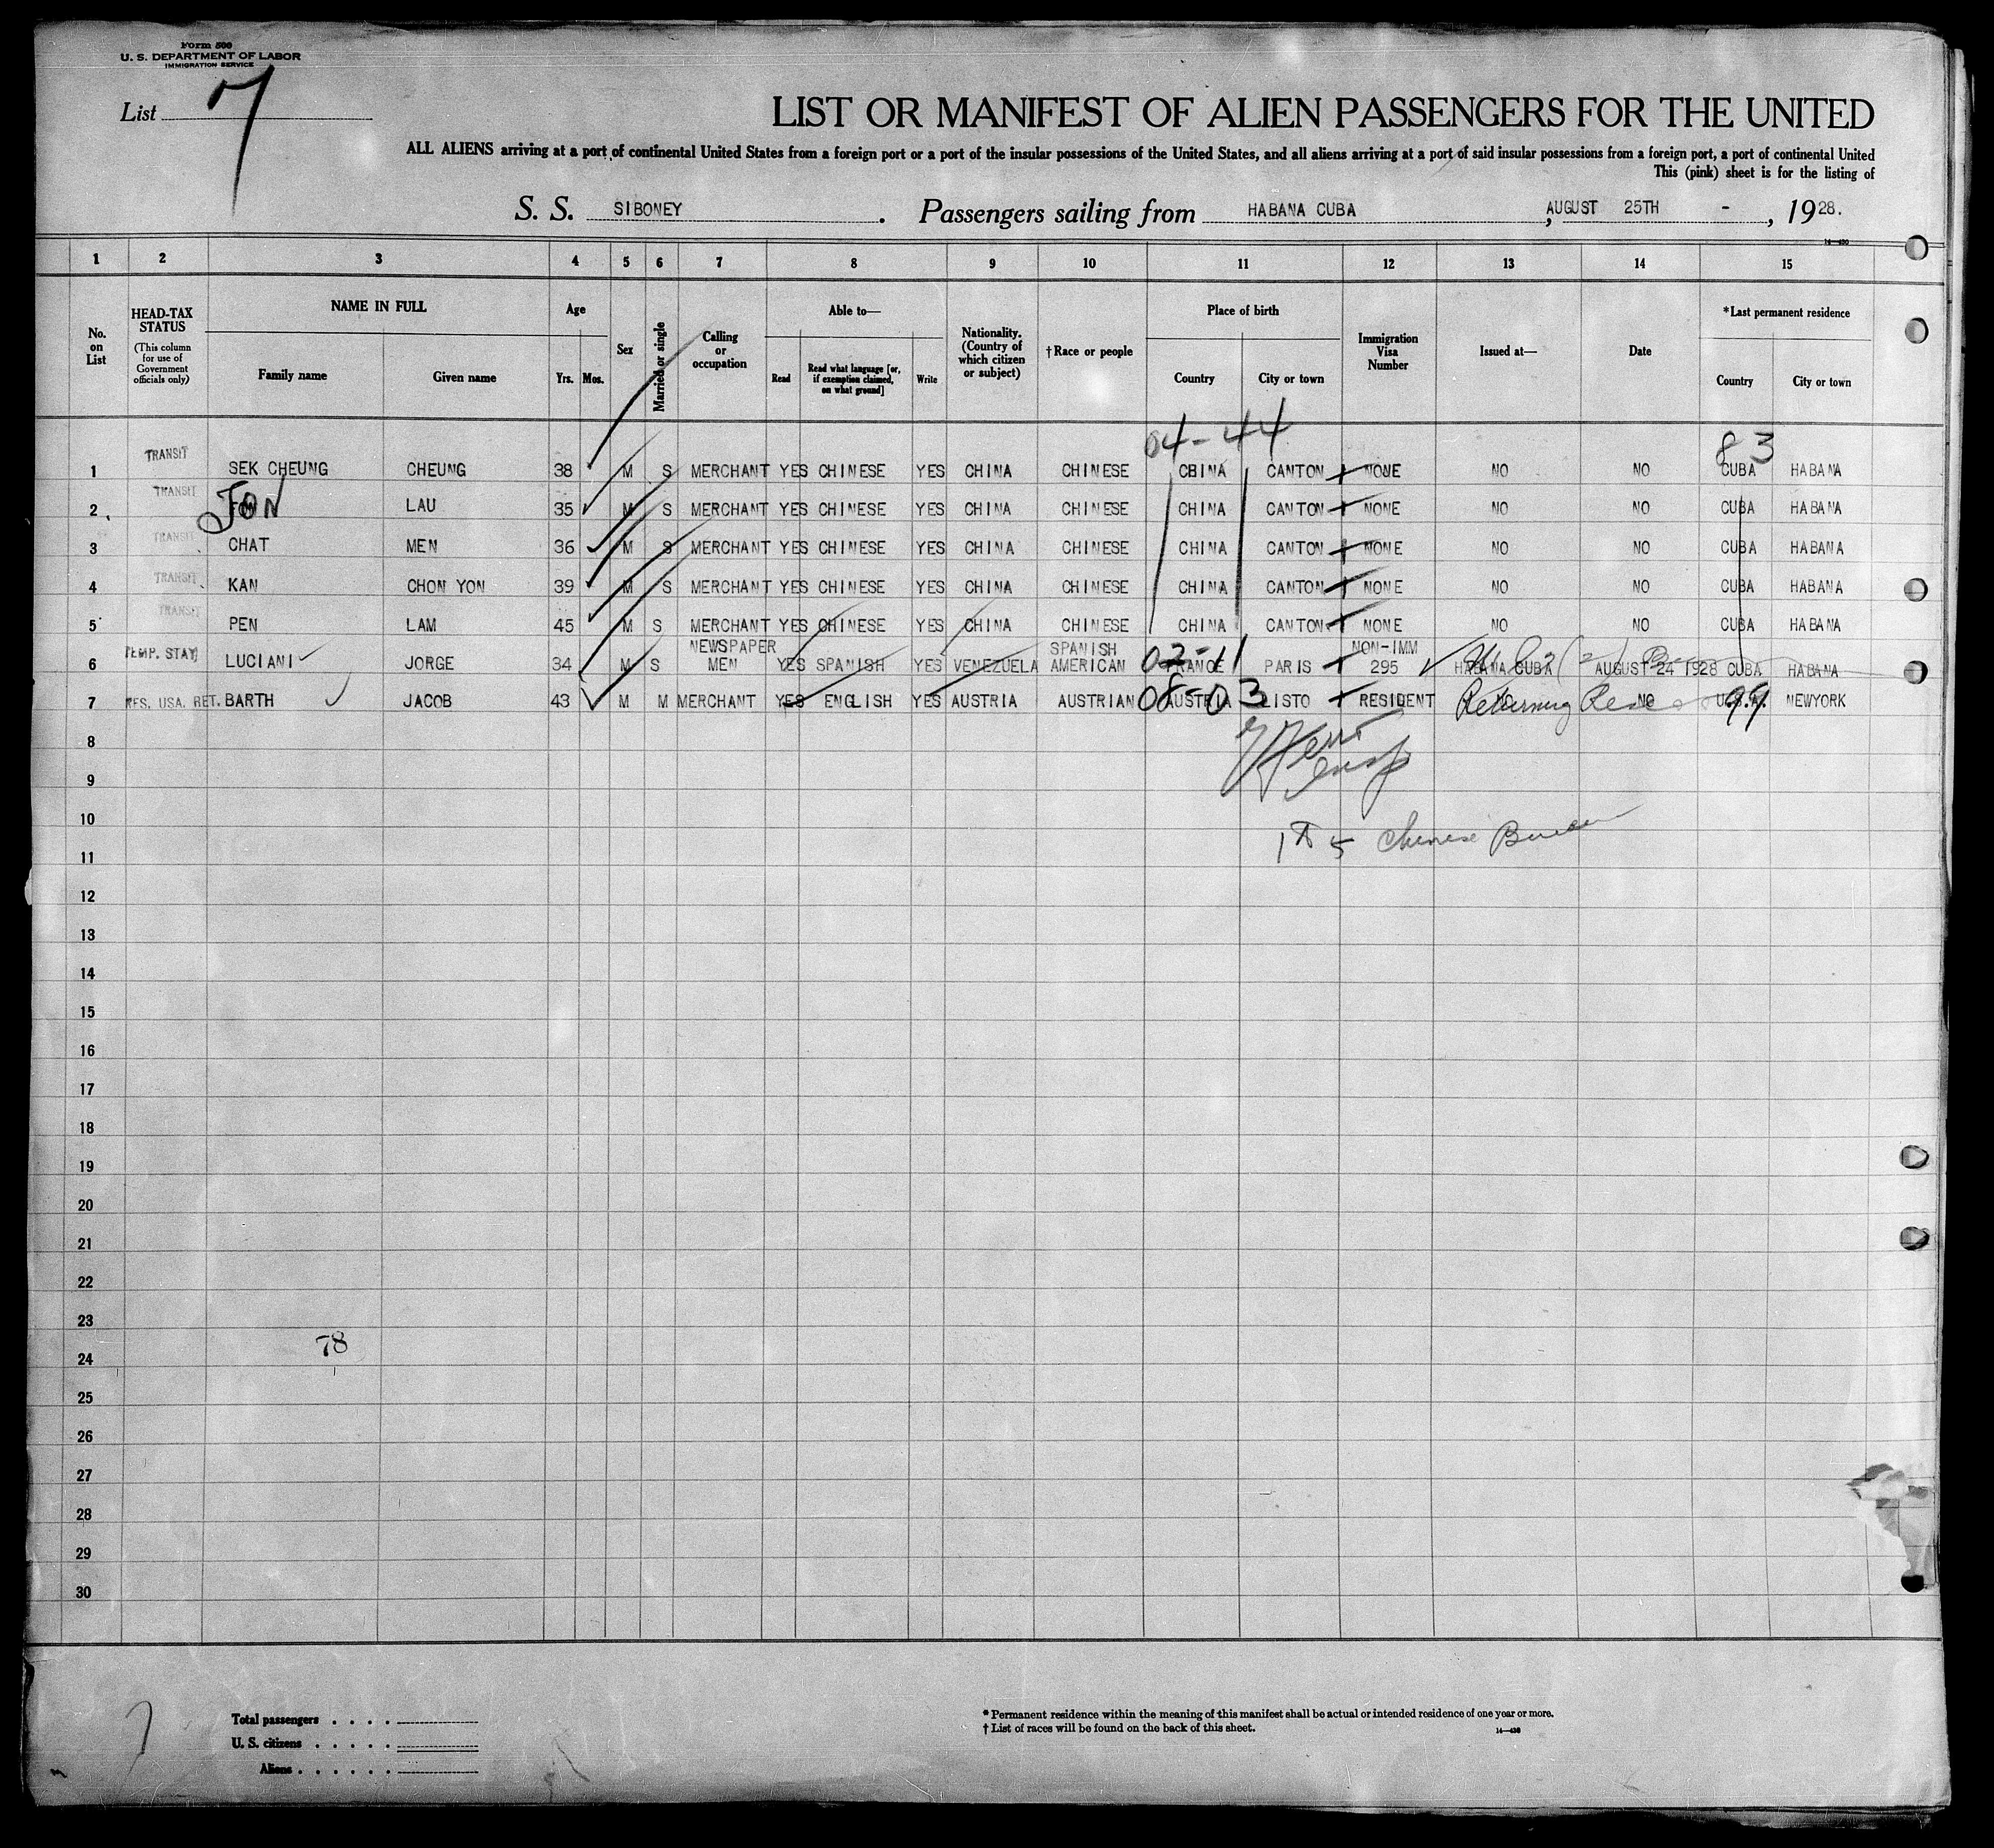 Form 500
U. S. DEPARTMENT OF LABOR
IMMIGRATION SERVICE
List 7
LIST OR MANIFEST OF ALIEN PASSENGERS FOR THE UNITED
ALL ALIENS arriving at a port of continental United States from a foreign port or a port of the insular possessions of the United States, and all aliens arriving at a port of said insular possessions from a foreign port, a port of continental United
This (pink) sheet is for the listing of
S. S. SIBONEY. Passengers sailing from HABANA CUBA, AUGUST 25TH -, 1928.
14-430
1 2 3 4 5 6 7 8 9 10 11 12 13 14 15
No. on List
HEAD-TAX STATUS (This column for use of Government officials only)
NAME IN FULL
Family name Given name
Age
Yrs. Mos.
Sex
Married or single
Calling or occupation
Able to—
Read Read what language [or, if exemption claimed, on what ground] Write
Nationality. (Country of which citizen or subject)
† Race or people
Place of birth
Country City or town
Immigration Visa Number
Issued at—
Date
*Last permanent residence
Country City or town
04-44 83
1 TRANSIT SEK CHEUNG CHEUNG 38 M S MERCHANT YES CHINESE YES CHINA CHINESE CBINA CANTON NONE NO NO CUBA HABANA
2 TRANSIT JON LAU 35 M S MERCHANT YES CHINESE YES CHINA CHINESE CHINA CANTON NONE NO NO CUBA HABANA
3 TRANSIT CHAT MEN 36 M S MERCHANT YES CHINESE YES CHINA CHINESE CHINA CANTON NONE NO NO CUBA HABANA
4 TRANSIT KAN CHON YON 39 M S MERCHANT YES CHINESE YES CHINA CHINESE CHINA CANTON NONE NO NO CUBA HABANA
5 TRANSIT PEN LAM 45 M S MERCHANT YES CHINESE YES CHINA CHINESE CHINA CANTON NONE NO NO CUBA HABANA
6 TEMP. STAY LUCIANI JORGE 34 M S NEWSPAPER MEN YES SPANISH YES VENEZUELA SPANISH AMERICAN 02-11 FRANCE PARIS NON-IMM 295 HABANA CUBA AUGUST 24 1928 CUBA HABANA
7 RES. USA. RET. BARTH JACOB 43 M M MERCHANT YES ENGLISH YES AUSTRIA AUSTRIAN 08-03 AUSTRIA LISTO RESIDENT NO Returning NO U.S.A. 99 NEWYORK
8
9
10
1 to 5 Chinese Bureau
11
12
13
14
15
16
17
18
19
20
21
22
23
78
24
25
26
27
28
29
30
Total passengers
U. S. citizens
Aliens
* Permanent residence within the meaning of this manifest shall be actual or intended residence of one year or more.
† List of races will be found on the back of this sheet.
14-430